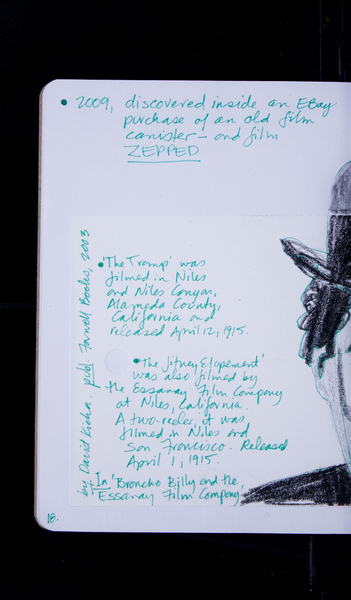 • 2009, discovered inside an EBay
purchase of an old film
canister – and film
ZEPPED
• 'The Tramp' was
filmed in Niles
and Niles Canyon,
Alameda County,
California and
released April 12, 1915.
• 'The Jitney Elopement'
was also filmed by
the Essanay Film Company
at Niles, California.
A two-reeler, it was
filmed in Niles and
San Francisco. Released
April 1, 1915.
In 'Broncho Billy and the
Essanay Film Company
by David Kiehn. publ. Farwell Books, 2003
18.